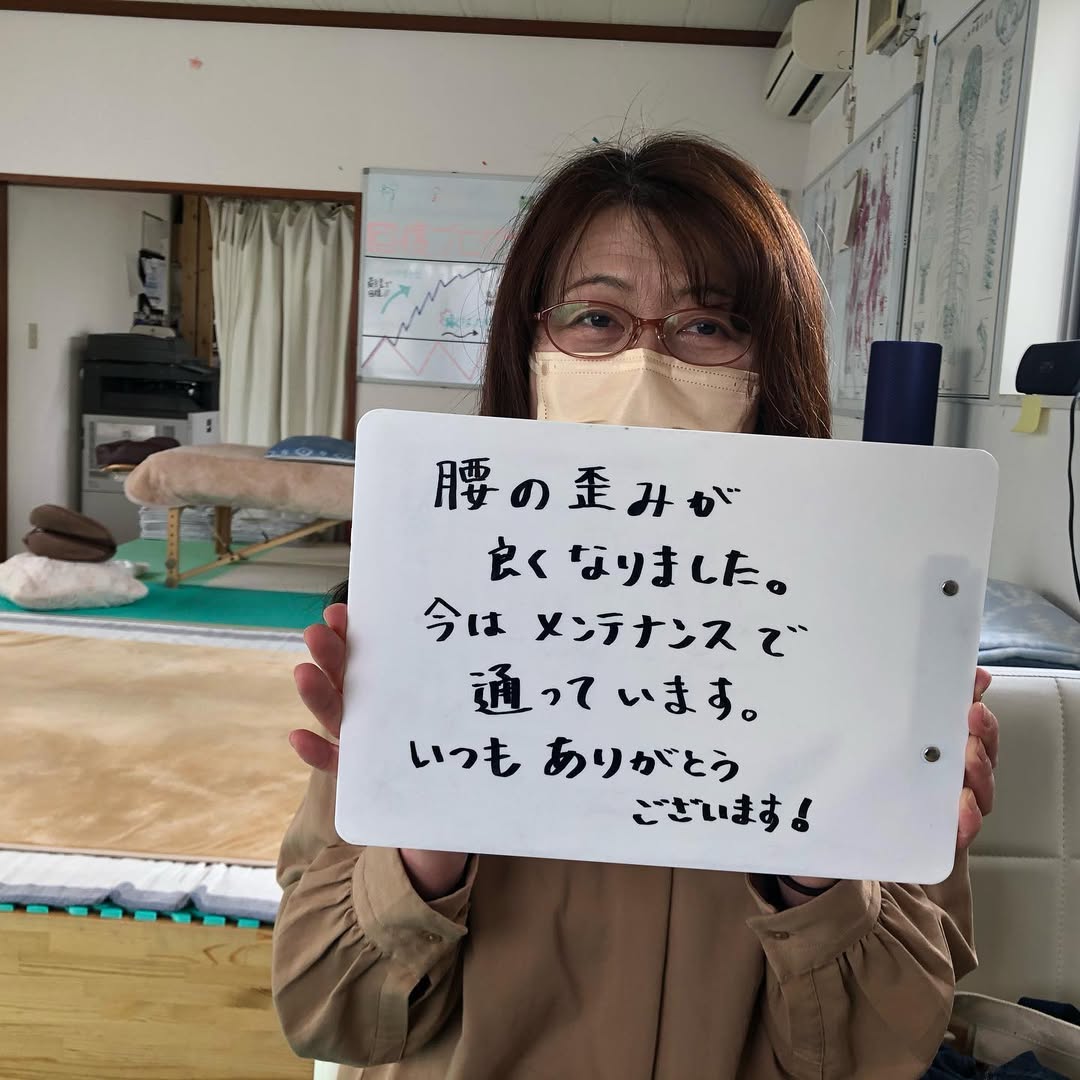 腰の歪みが
良くなりました。
今はメンテナンスで
通っています。
いつもありがとう
ございます!